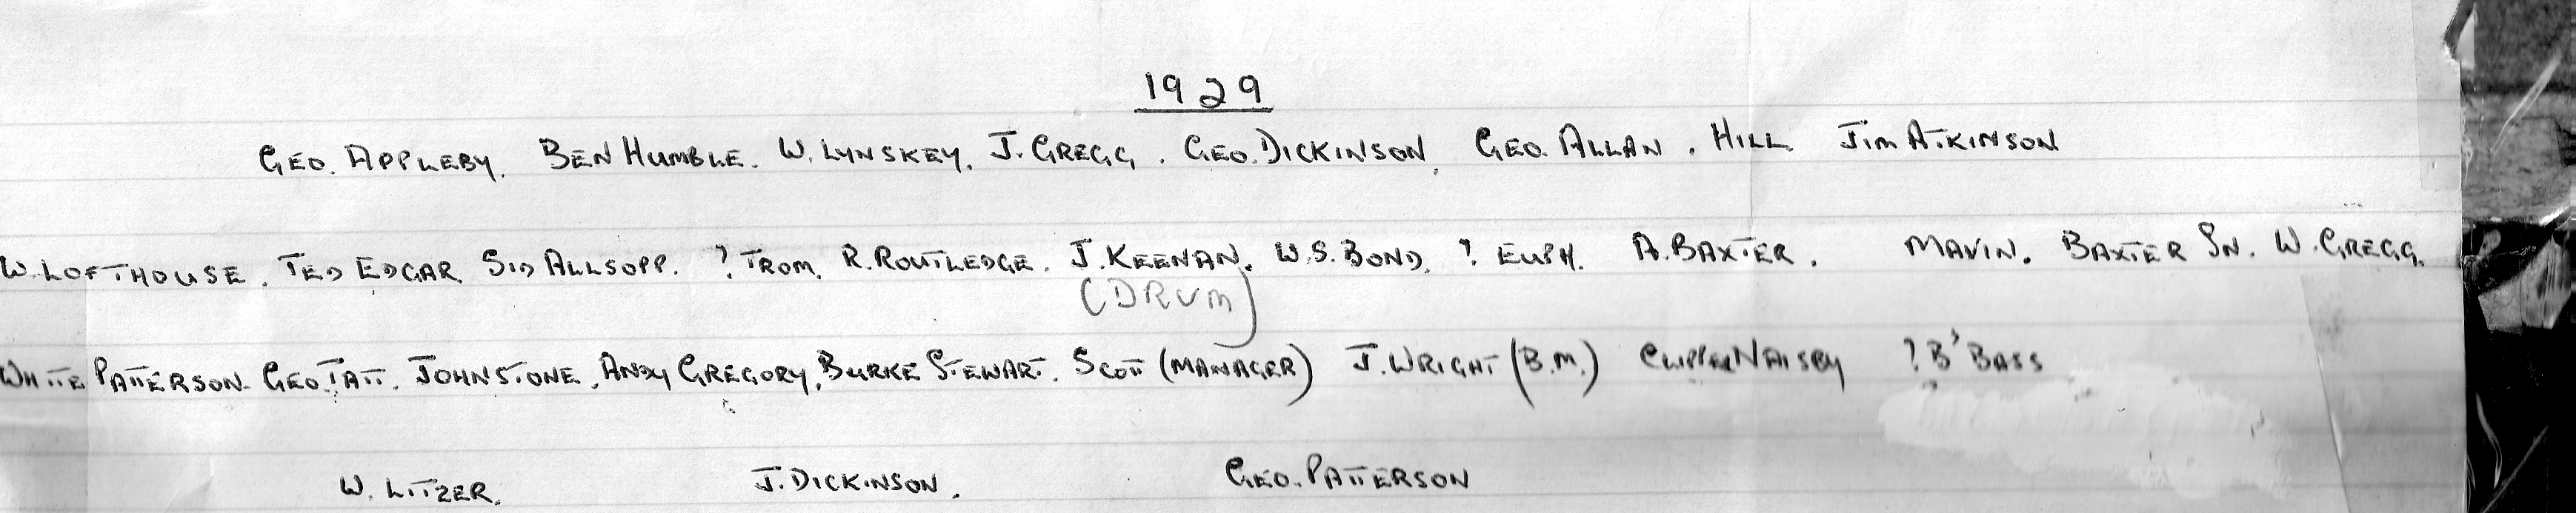 1929
GEO. APPLEBY. BEN HUMBLE. W. LYNSKEY. J. GREGG. GEO. DICKINSON. GEO. ALLAN. HILL JIM ATKINSON
W. LOFTHOUSE. TED EDGAR SID ALLSOPP. ? TROM. R. ROUTLEDGE. J. KEENAN. W.S. BOND. ? EUPH. A. BAXTER. MAVIN. BAXTER SN. W. GREGG.
(DRUM)
WHITE PATTERSON. GEO. TATT. JOHNSTONE. ANDY GREGORY. BURKE STEWART. SCOTT (MANAGER) J. WRIGHT (B.M.) NAISBY ? B' BASS
W. LITZER. J. DICKINSON. GEO. PATTERSON